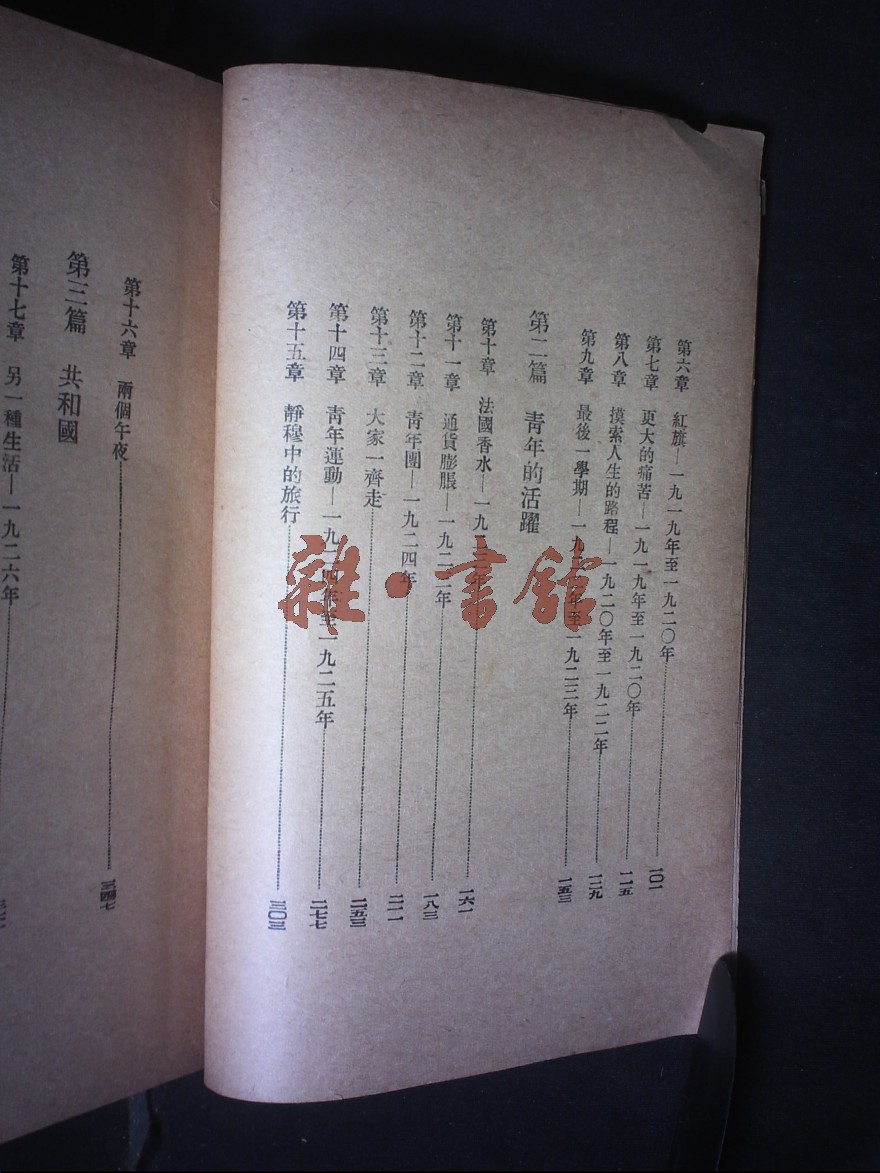 第六章　紅旗—一九一九年至一九二〇年 一〇一
第七章　更大的痛苦—一九一九年至一九二〇年 一一五
第八章　摸索人生的路程—一九二〇年至一九二二年 一二九
第九章　最後一學期—一九二二年至一九二三年 一五三
第二篇　青年的活躍
第十章　法國香水—一九二三年 一六一
第十一章　通貨膨脹—一九二三年 一八三
第十二章　青年團—一九二四年 二一一
第十三章　大家一齊走 二五三
第十四章　青年運動—一九二四年至一九二五年 二七七
第十五章　靜穆中的旅行 三〇三
第十六章　兩個午夜 三四七
第三篇　共和國
第十七章　另一種生活—一九二六年
雜·書館